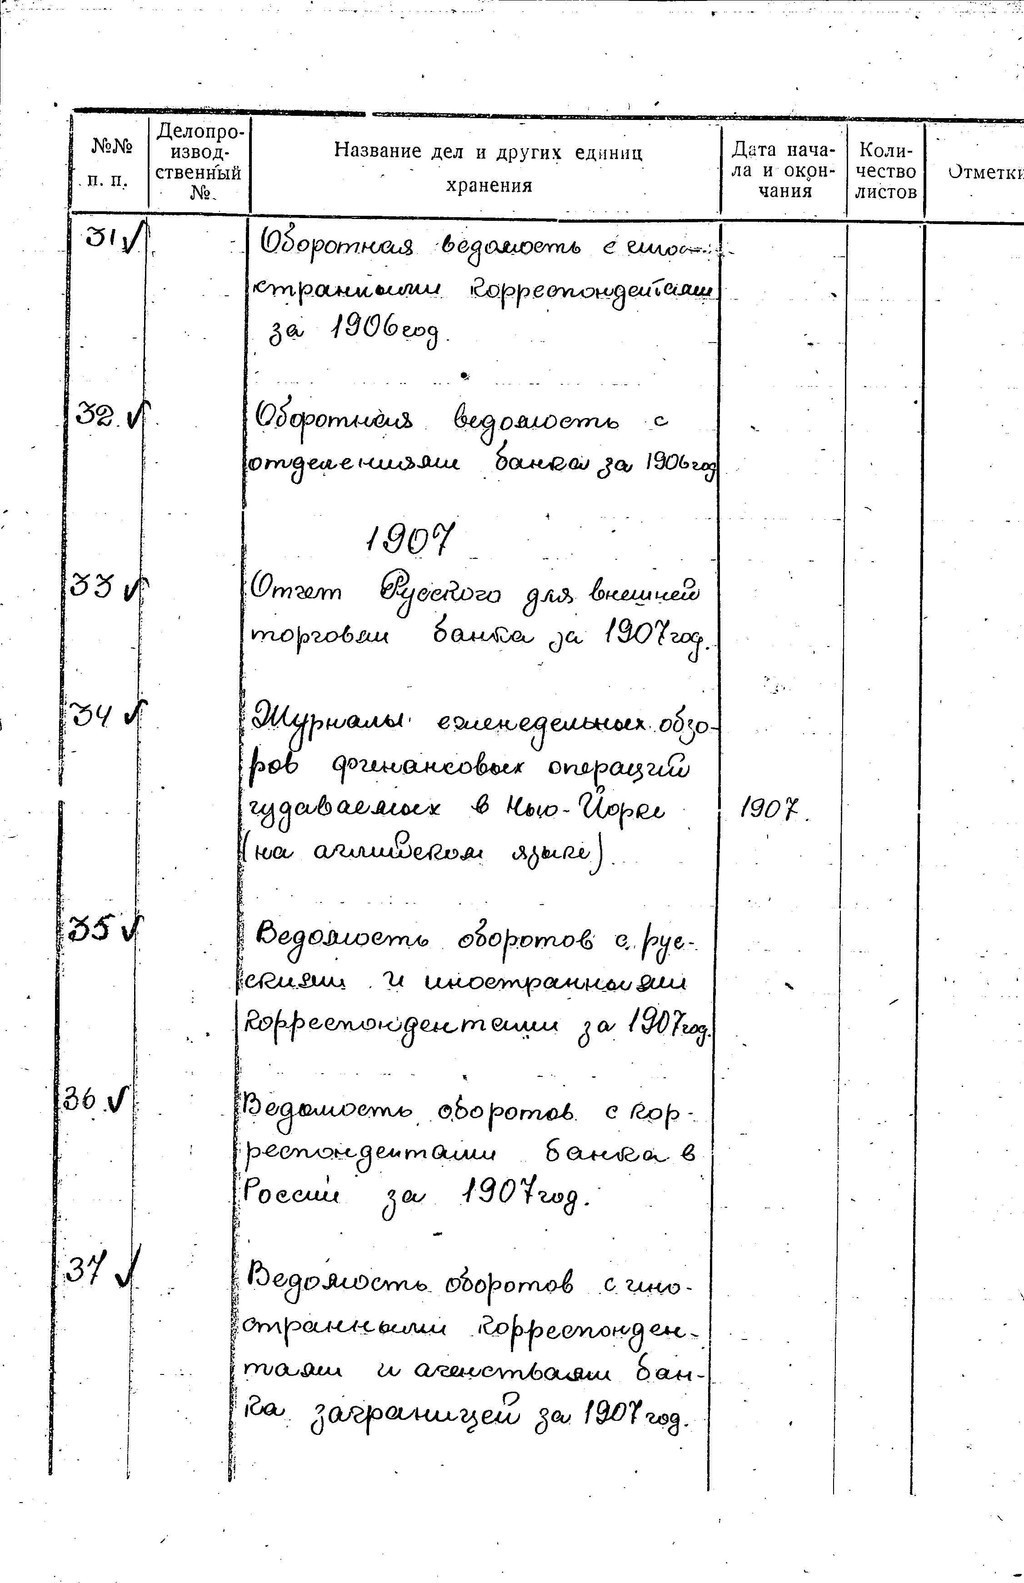 №№ п. п.
Делопро-
извод-
ственный
№
Название дел и других единиц
хранения
Дата нача-
ла и окон-
чания
Коли-
чество
листов
Отметки
31 √ Оборотная ведомость с ино-
странными корреспондентами
за 1906 год.
32. √ Оборотная ведомость с
отделениями банка за 1906 год
1907
33 √ Отчет Русского для внешней
торговли банка за 1907 год.
34 √ Журналы еженедельных обзо-
ров финансовых операций
издаваемых в Нью-Йорке 1907.
(на английском языке)
35 √ Ведомость оборотов с рус-
скими и иностранными
корреспондентами за 1907 год.
36. √ Ведомость оборотов с кор-
респондентами банка в
России за 1907 год.
37 √ Ведомость оборотов с ино-
странными корреспонден-
тами и агенствами бан-
ка заграницей за 1907 год.